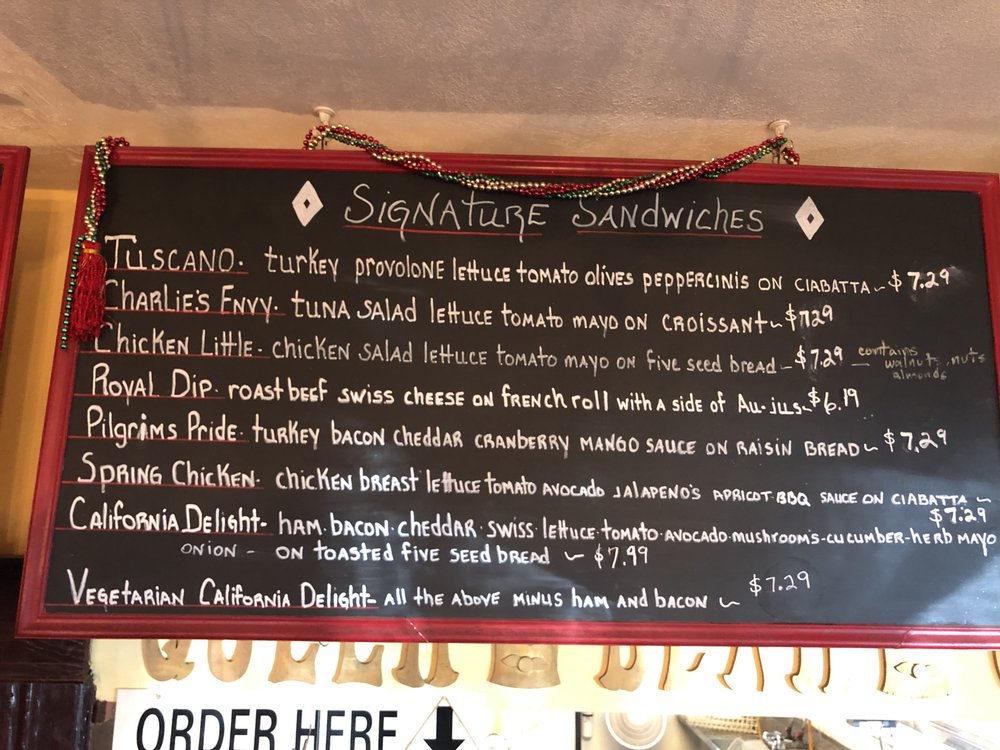 SIGNATURE SANDWICHES
TUSCANO. turkey PROVOLONE lettuce TOMATO olives PEPPERCINIS ON CIABATTA ~ $7.29
CHARLIE'S ENVY. TUNA SALAD lettuce TOMATO MAYO ON CROISSANT ~ $7.29
Chicken Little. chicken SALAD lettuce TOMATO MAYO ON five SEED BREAD - $7.29 — contains
walnuts, nuts
almonds
ROYAL DIP. ROAST BEEF SWISS CHEESE ON FRENCH ROLL WITH A SIDE OF AU-JUS ~ $6.19
PILGRIMS PRIDE. TURKEY BACON CHEDDAR CRANBERRY MANGO SAUCE ON RAISIN BREAD ~ $7.29
SPRING CHICKEN. CHICKEN BREAST LETTUCE TOMATO AVOCADO JALAPENO'S APRICOT-BBQ SAUCE ON CIABATTA ~
$7.29
CALIFORNIA DELIGHT- HAM. BACON. CHEDDAR. SWISS. LETTUCE. TOMATO. AVOCADO. MUSHROOMS-CUCUMBER-HERB MAYO
ONION - ON TOASTED FIVE SEED BREAD ~ $7.99
VEGETARIAN CALIFORNIA DELIGHT- ALL THE ABOVE MINUS HAM AND BACON ~ $7.29
ORDER HERE